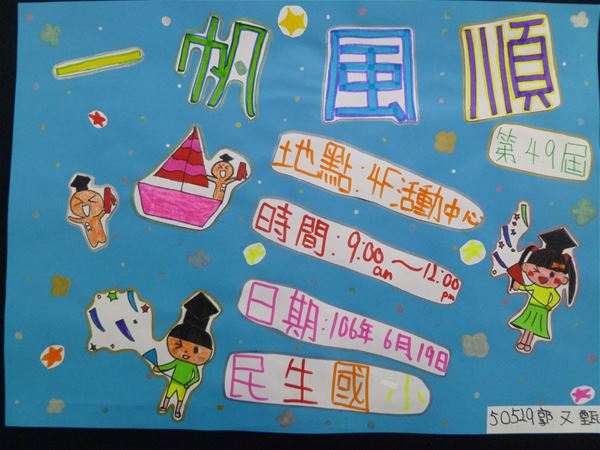 一帆風順
第49屆
地點:4F活動中心
時間:9:00am～12:00pm
日期:106年6月19日
民生國小
50519郭又甄